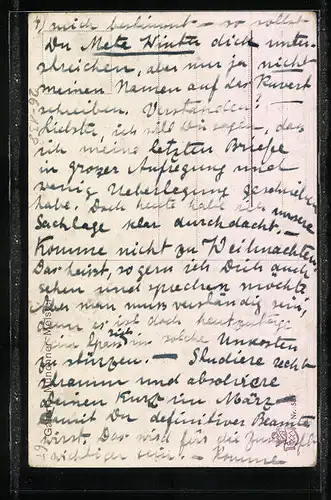 4) mich bestimmt - so sollst
Du Meta Winter dich unter-
streichen, aber nur ja nicht
meinen Namen auf das Kuvert
schreiben. Verstanden? -
Liebste, ich will Dir sagen, dass
ich meine letzten Briefe
in grosser Aufregung und
wenig Ueberlegung geschrieben
habe. Doch heute habe ich unsere
Sachlage klar durchdacht. -
Komme nicht zu Weihnachten.
Das heisst, so gern ich Dich auch
sehen und sprechen möchte
Aber man muss verständig sein,
denn es ist doch heutzutage
kein Spass sich in solche Unkosten
zu stürzen. - Studiere recht
stramm und absolviere
Deinen Kurs im März -
damit Du definitiver Beamte
wirst. Das wird für die Zukunft
wichtiger sein. - Komme
Galerie Münchner Meister